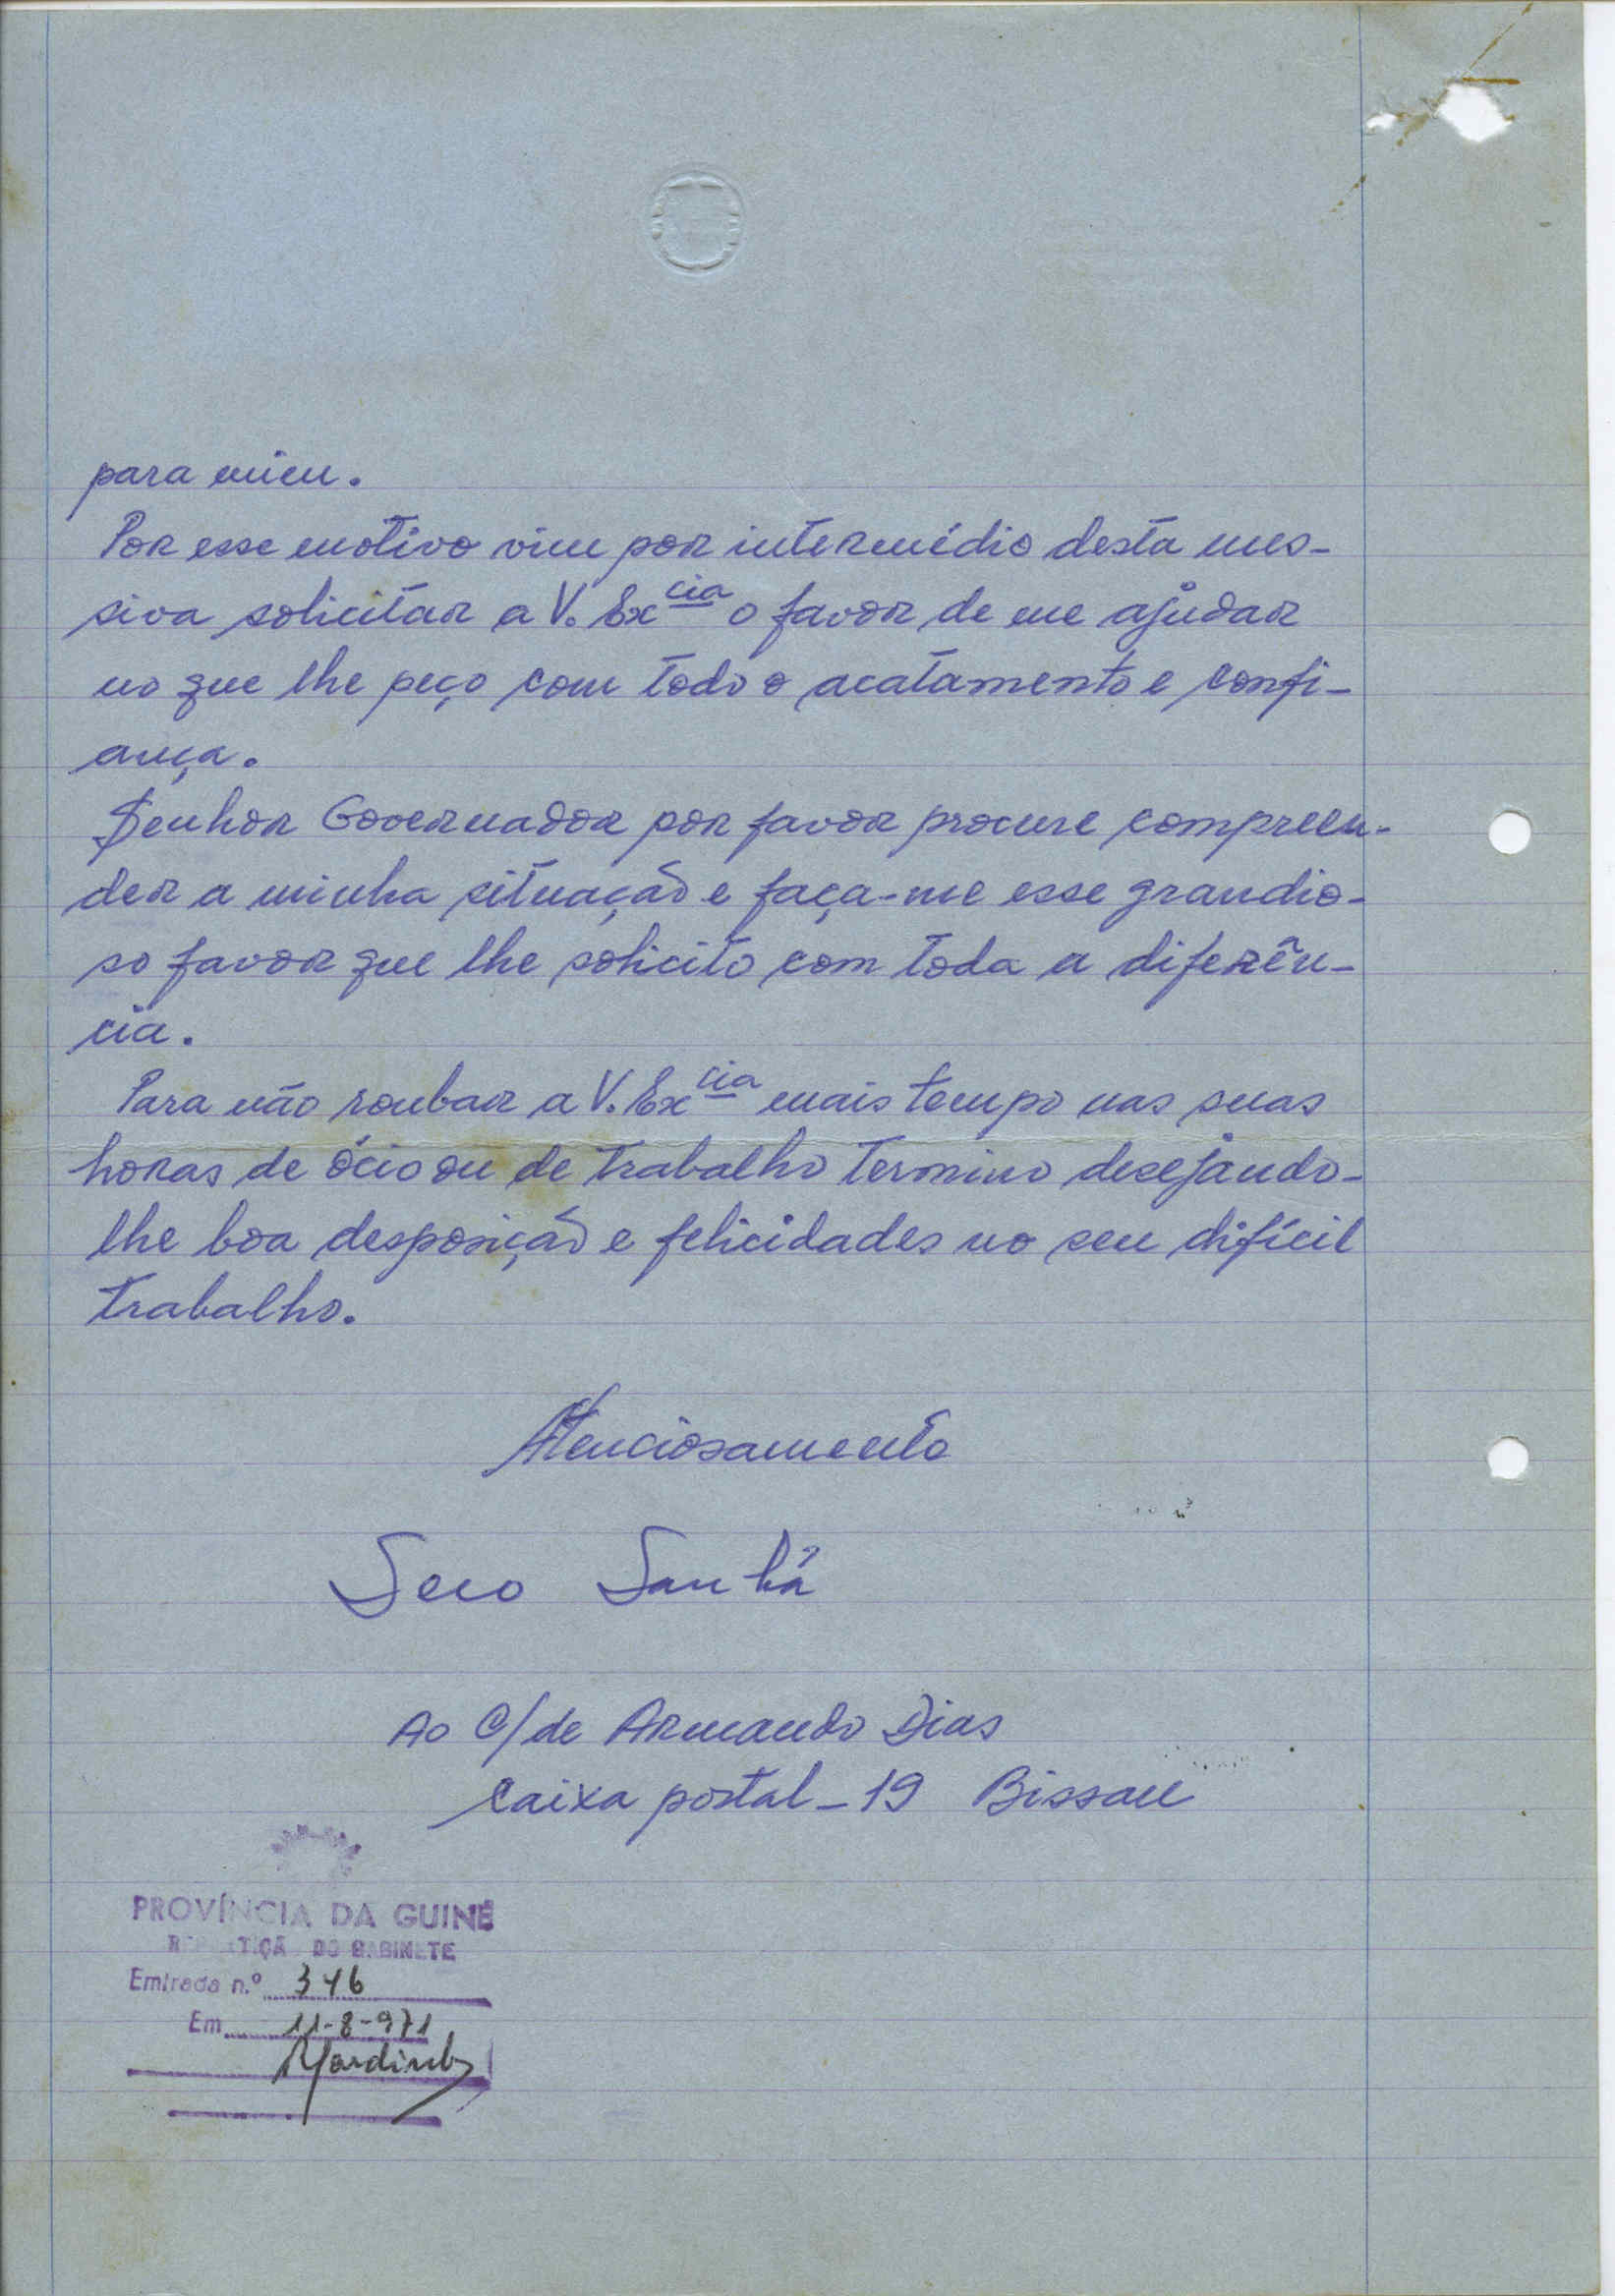 para mim.
Por esse motivo vim por intermédio desta mis-
siva solicitar a V. Excia o favor de me ajudar
no que lhe peço com todo o acatamento e confi-
ança.
Senhor Governador por favor procure compreen-
der a minha situação e faça-me esse grandio-
so favor que lhe solicito com toda a diferên-
cia.
Para não roubar a V. Excia mais tempo nas suas
horas de ócio ou de trabalho termino desejando-
lhe boa desposição e felicidades no seu difícil
trabalho.
Atenciosamente
Seco Sanhá
Ao C/de Armando Dias
Caixa postal - 19 Bissau
PROVÍNCIA DA GUINÉ
REPARTIÇÃO DO GABINETE
Entrada n.º 346
Em 11-8-971